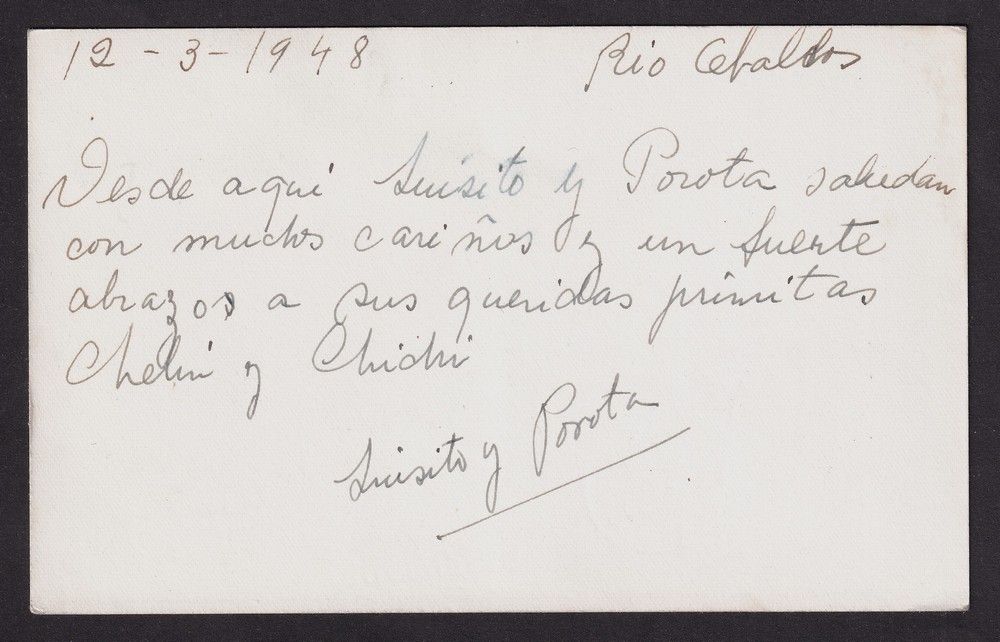 12 - 3 - 1948 Rio Ceballos
Desde aqui Luisito y Porota saludan
con muchos cariños y un fuerte
abrazos a sus queridas primitas
Chelin y Chichi
Luisito y Porota